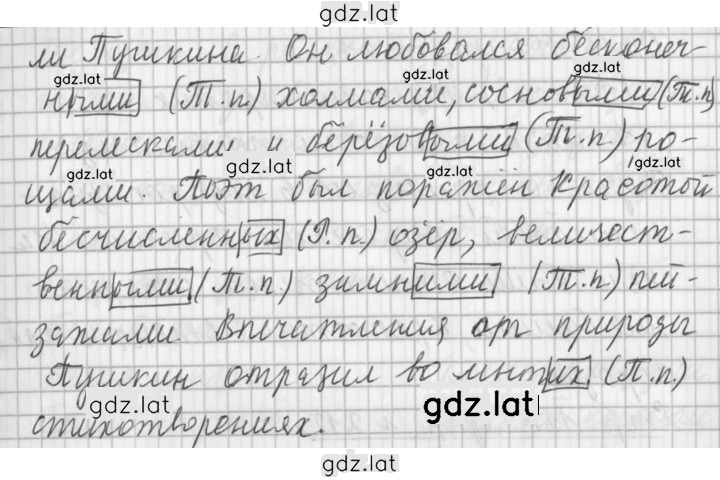 gdz.lat
ли Пушкина. Он любовался бесконеч-
gdz.lat gdz.lat gdz.lat
ными (Т.п.) холмами, сосновыми (Т.п.)
перелесками и берёзовыми (Т.п.) ро-
gdz.lat gdz.lat
щами. Поэт был поражён красотой
бесчисленных (Р.п.) озёр, величест-
венными (Т.п.) зимними (Т.п.) пей-
зажами. Впечатления от природы
Пушкин отразил во многих (П.п.)
gdz.lat gdz.lat
стихотворениях.
gdz.lat